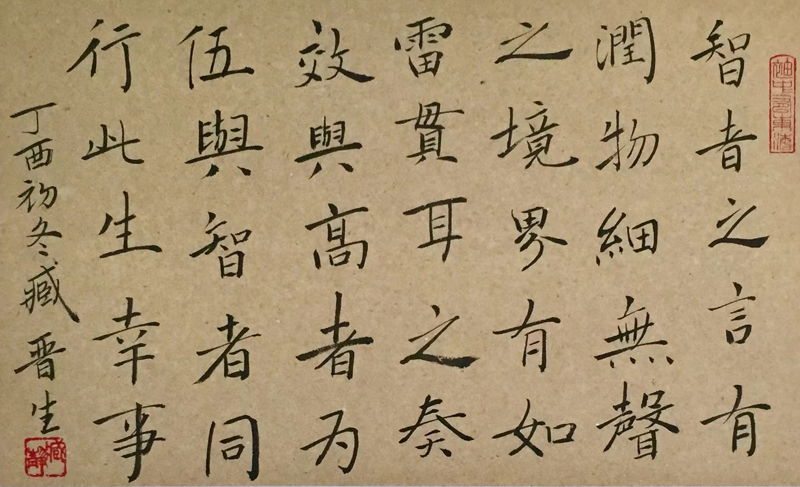 智者之言有
潤物細無聲
之境界有如
雷貫耳之奏
效與高者为
伍與智者同
行此生幸事
丁酉初冬臧晋生